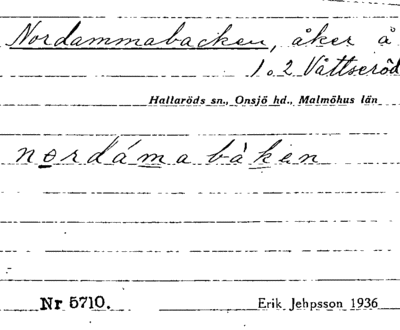 Nordammabacken, åker å
1 o. 2 Våttseröd
Hallaröds sn., Onsjö hd., Malmöhus län
nordámabàken
Nr 5710. Erik Jehpsson 1936